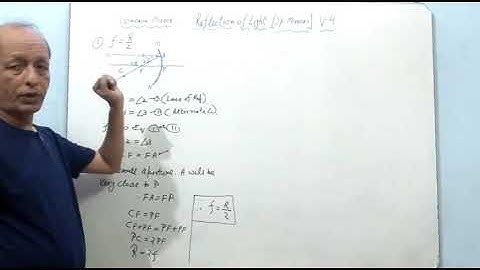 Concave Mirror Reflection of Light [SP. Mirror] V-4
① f = R/2
= ∠2 - ① (Law of Ref)
= ∠3 - ② (Alternate ∠)
∠2 = ∠3
F = FA
small aperture, A will be
very close to P
FA = FP
CF = PF
CF + PF = PF + PF
PC = 2PF
R = 2f
∴ f = R/2